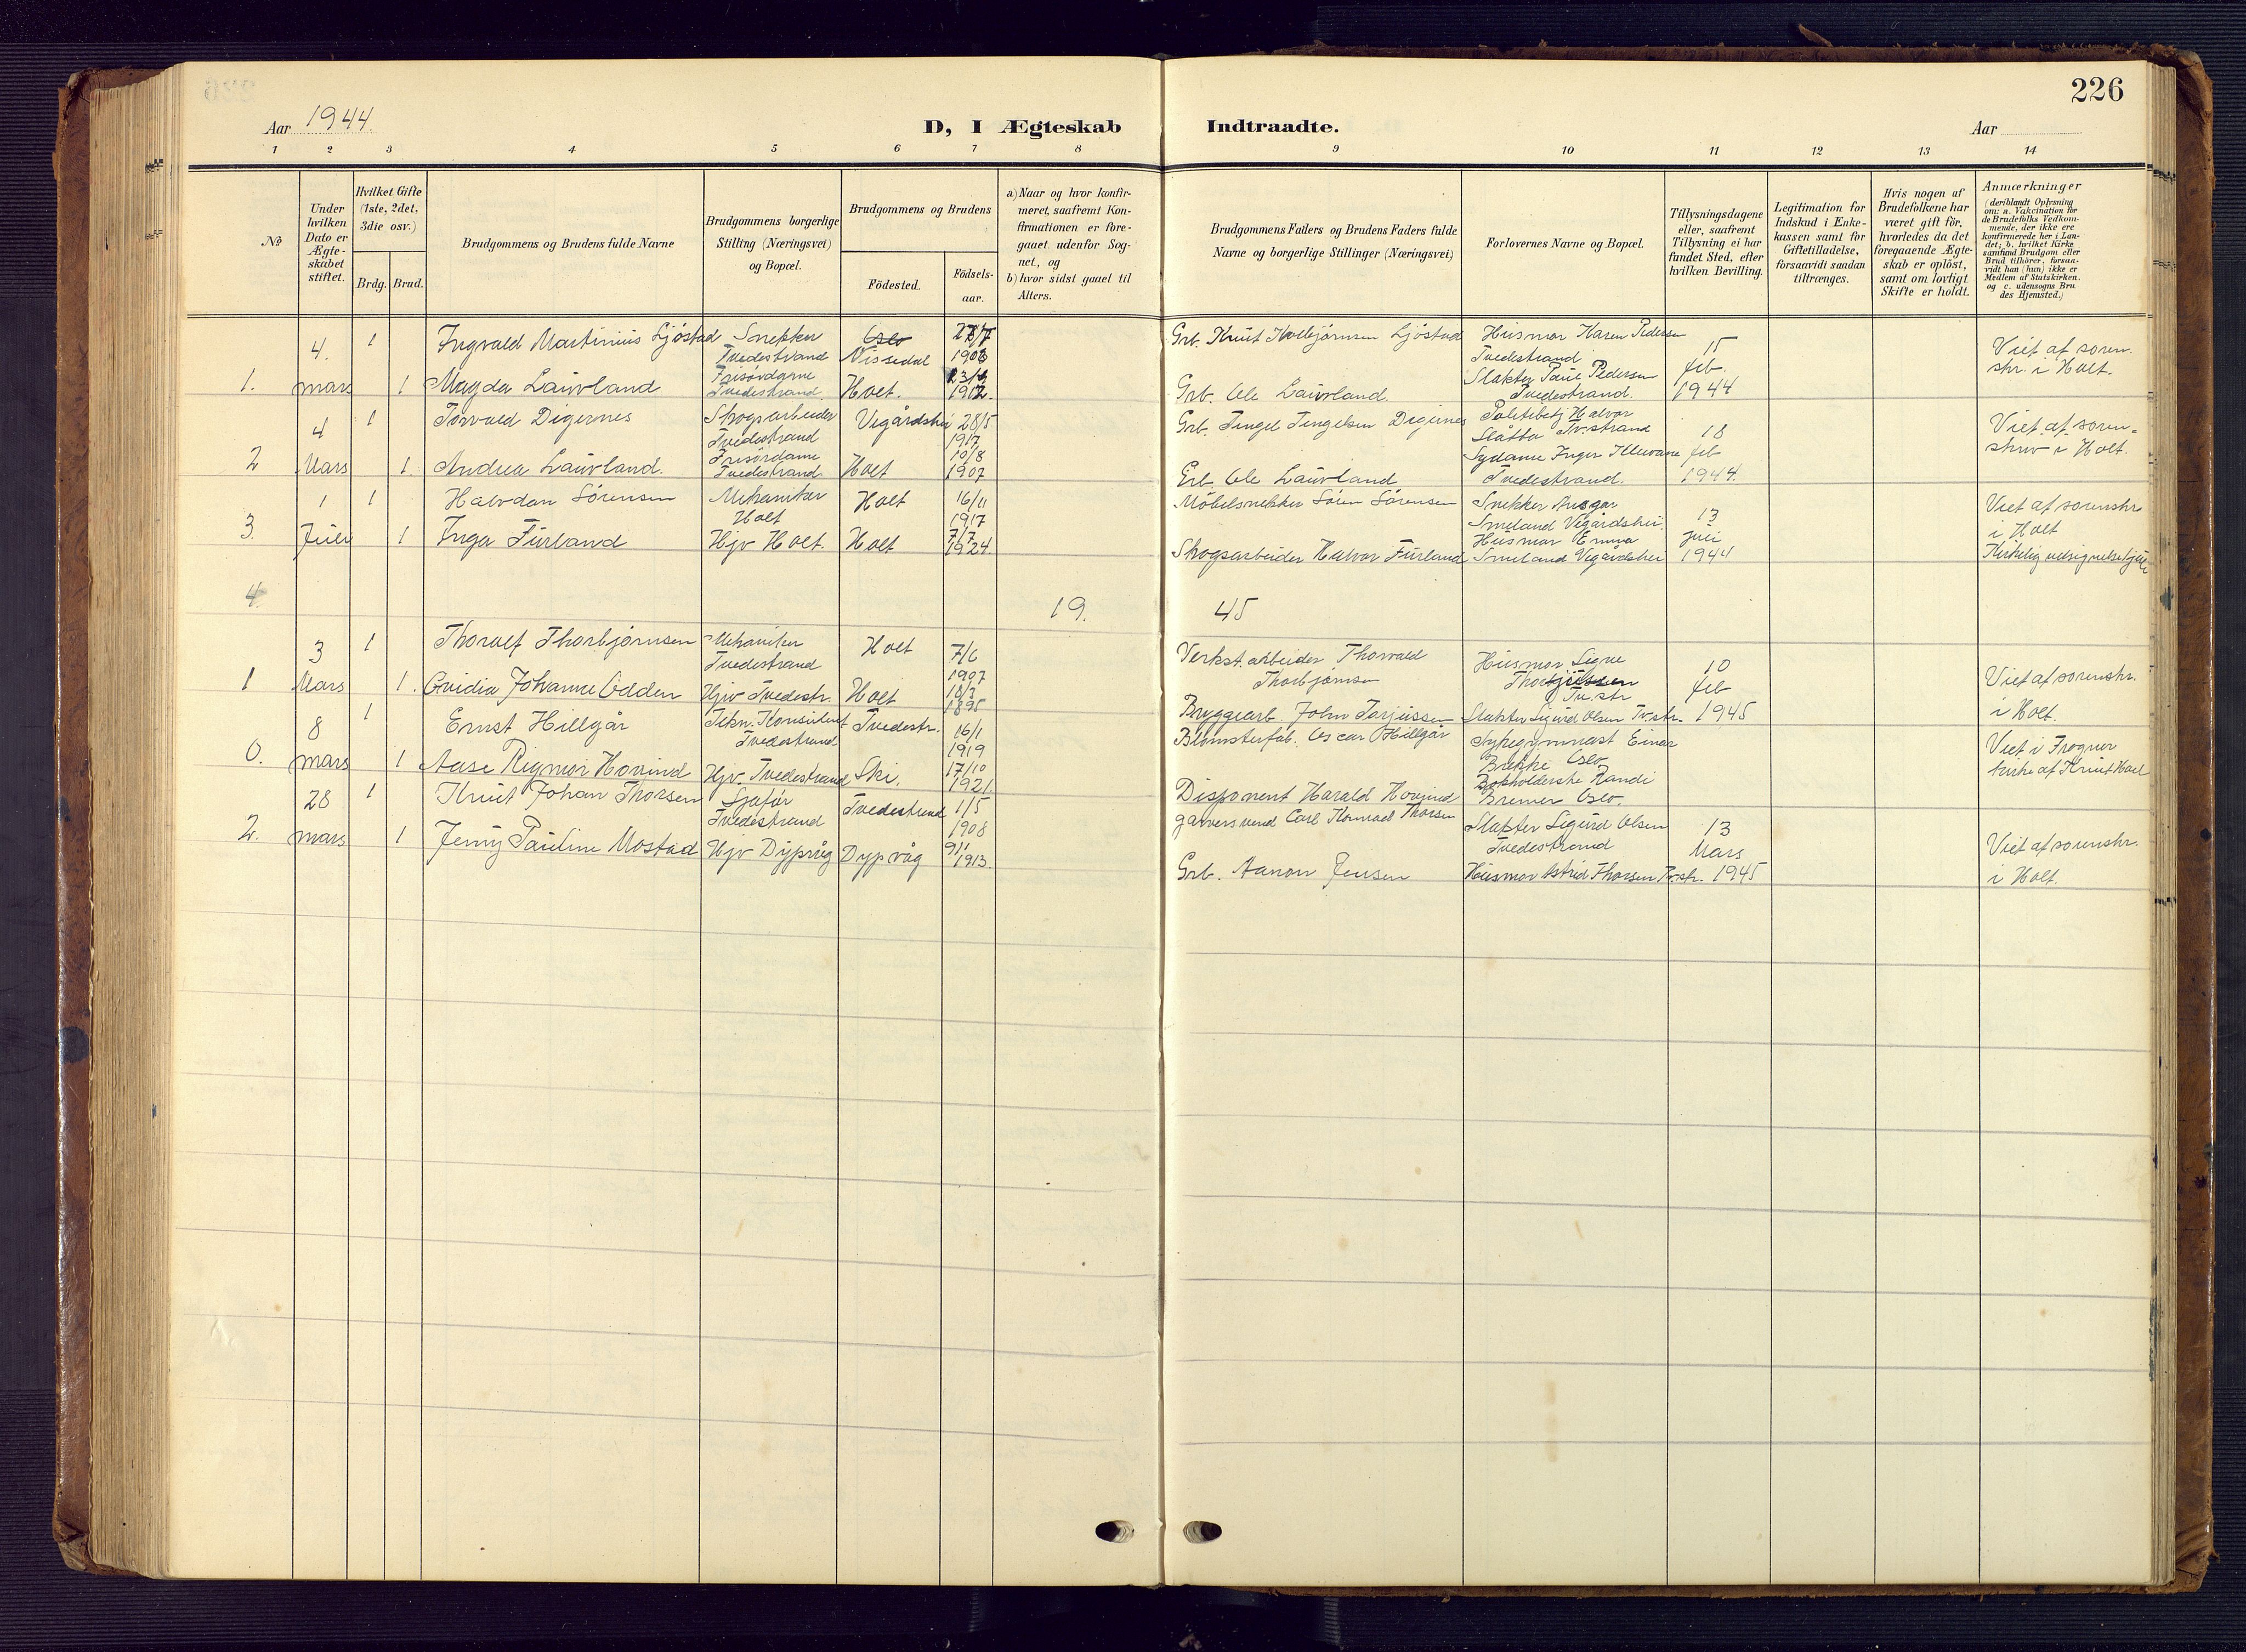 226
Aar 1944.
D, I Ægteskab Indtraadte.
Aar
1 2 3 4 5 6 7 8 9 10 11 12 13 14
No
Under hvilken Dato er Ægteskabet stiftet.
Hvilket Gifte (1ste, 2det, 3die osv.)
Brdg. Brud.
Brudgommens og Brudens fulde Navne
Brudgommens borgerlige Stilling (Næringsvei) og Bopæl.
Brudgommens og Brudens
Födested.
Födsels-aar.
a) Naar og hvor konfirmeret, saafremt Konfirmationen er foregaaet udenfor Sognet, og
b) hvor sidst gaael til Alters.
Brudgommens Faders og Brudens Faders fulde Navne og borgerlige Stillinger (Næringsvei)
Forlovernes Navne og Bopæl.
Tillysningsdagene eller, saafremt Tillysning ei har fundet Sted, efter hvilken Bevilling.
Legitimation for Indskud i Enkekassen samt for Giftetilladelse, forsaavidt saadan tiltrænges.
Hvis nogen af Brudefolkene har været gift för, hvorledes da det foregaaende Ægteskab er oplöst, samt om lovligt Skifte er holdt.
Anmærkninger
(deriblandt Oplysning om: a. Vakcination for de Brudefolks Vedkommende, der ikke ere konfirmerede her i Landet; b. hvilket Kirkesamfund Brudgom eller Brud tilhörer, forsaavidt han (hun) ikke er Medlem af Statskirken. og c. udensogns Brudes Hjemsted.)
1. 4. mars
1 Ingvald Martinius Ljöstad Snekker Tvedestrand Oslo Nissedal 1903
Grb. Knut Ljöstad
Husmor Karen Pedersen Tvedestrand
1 Magda Lauvland Frisördame Tvedestrand. Holt. 1912.
Grb. Ole Lauvland.
Slakter Paul Pedersen Tvedestrand.
15 feb. 1944
Viet af sorenskr. i Holt.
2 4 Mars
1 Torvald Digernes Skogsarbeider Tvedestrand Vegårdshei 28/5 1917
Grb. Tingel Tingelsen Digernes
Politibetj Halvor Slåtta Tv.strand
1. Andrea Lauvland. Frisördame Tvedestrand Holt 10/8 1907
Grb. Ole Lauvland
Sydame Inger Tvedestrand.
18 feb 1944.
Viet af sorenskriv i Holt.
3. 1 Juli
1 Halvdan Sörensen Mekaniker Holt Holt 16/11 1917
Möbelsnekker Sören Sörensen
Snekker Ansgar Smeland Vegårdshei.
1 Inga Furland Hjv Holt. Holt 7/7 1924
Skogsarbeider Halvor Furland
Husmor Emma Smeland Vegårdshei
13 juli 1944
Viet af sorenskr i Holt
Kirkelig velsignelse
4.
19. 45
1 3 Mars
1 Thoralf Thorbjörnsen Mekaniker Tvedestrand Holt 7/6 1907
Verkst. arbeider Thorvald Thorbjörnsen
Husmor Signe Tv.str
1. Ovidia Johanne Odden Hjv Tvedestr. Holt 1895
Bryggearb. John Tarjussen
Slakter Sigurd Olsen Tv.str.
10 feb 1945
Viet af sorenskr. i Holt.
0. 8 mars
1 Ernst Hillgår Tekn. Konsulent Tvedestrand Tvedestr. 16/1 1919
Blomsterfab. Oscar Hillgår
Sykegymnast Einar Bakke Oslo
1 Aase Rigmor Hovind Hjv Tvedestrand Ski. 17/10 1921.
Disponent Harald Hovind
Bokholderske Randi Bremer Oslo.
Viet i Frogner kirke af
2. 28 mars
1 Knut Johan Thorsen Sjåför Tvedestrand Tvedestrand 1/5 1908
garversvend Carl Konrad Thorsen
Slakter Sigurd Olsen Tvedestrand
1 Jenny Pauline Mostad Hjv Dypvåg Dypvåg 9/1 1913.
Grb. Aanon Jensen
Husmor Astrid Thorsen Tv.str.
13 Mars 1945
Viet af sorenskr. i Holt.